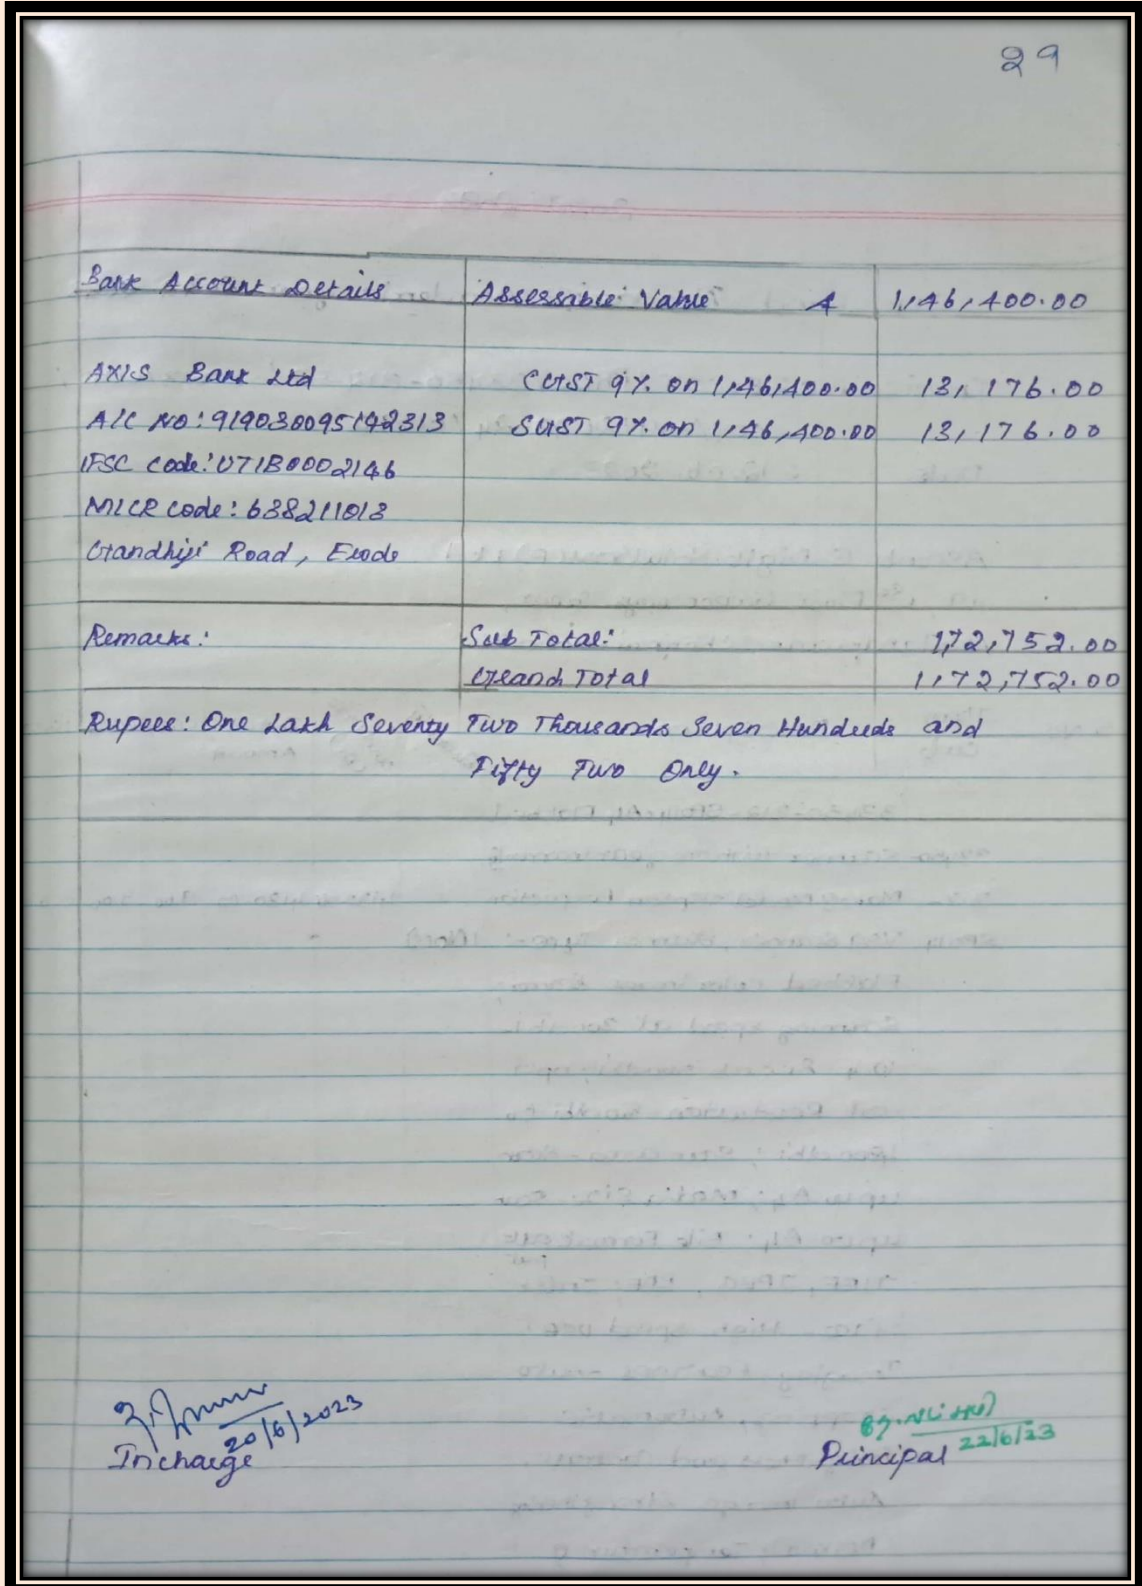 29
Bank Account Details Assessable Value 4 1,46,400.00
AXIS Bank Ltd CGST 9% on 1,46,400.00 13,176.00
A/C No: 919030095192313 SGST 9% on 1,46,400.00 13,176.00
IFSC code: UTIB0002146
MICR code: 638211013
Gandhiji Road, Erode
Remarks: Sub Total: 1,72,752.00
Grand Total 1,72,752.00
Rupees: One Lakh Seventy Two Thousands Seven Hundreds and
Fifty Two Only.
20/6/2023
Incharge
22/6/23
Principal